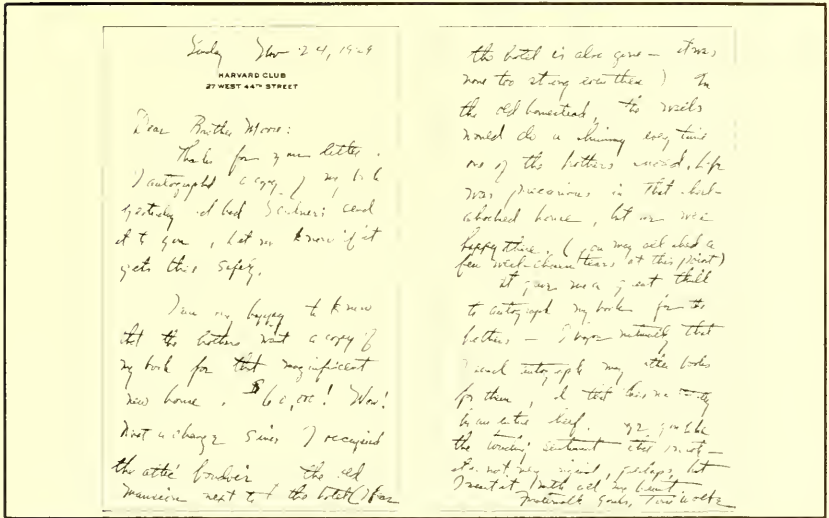 Sunday Nov 24, 1929
HARVARD CLUB
27 WEST 44TH STREET
Dear Brother Moore:
Thanks for your letter.
I autographed a copy of my book
yesterday and had Scribners send
it to you, let me know if it
gets there safely.
I am very happy to know
that the brothers want a copy of
my book for that magnificent
new home. $60,000! Wow!
What a change since I occupied
the attic boudoir the old
mansion next to the hotel (I hear
the hotel is also gone — it was
none too strong even then) In
the old homestead, the walls
would do a shimmy every time
one of the brothers moved. Life
was precarious in that
house, but we were
happy there. (you may all shed a
few well-chosen tears at this point)
It gave me a great thrill
to autograph my book for the
brothers — I hope that
I autograph many other books
for them, and that
by an entire
the sentiment
it's not very, perhaps, but
I meant it with all my heart
Fraternally yours, Tom Wolfe